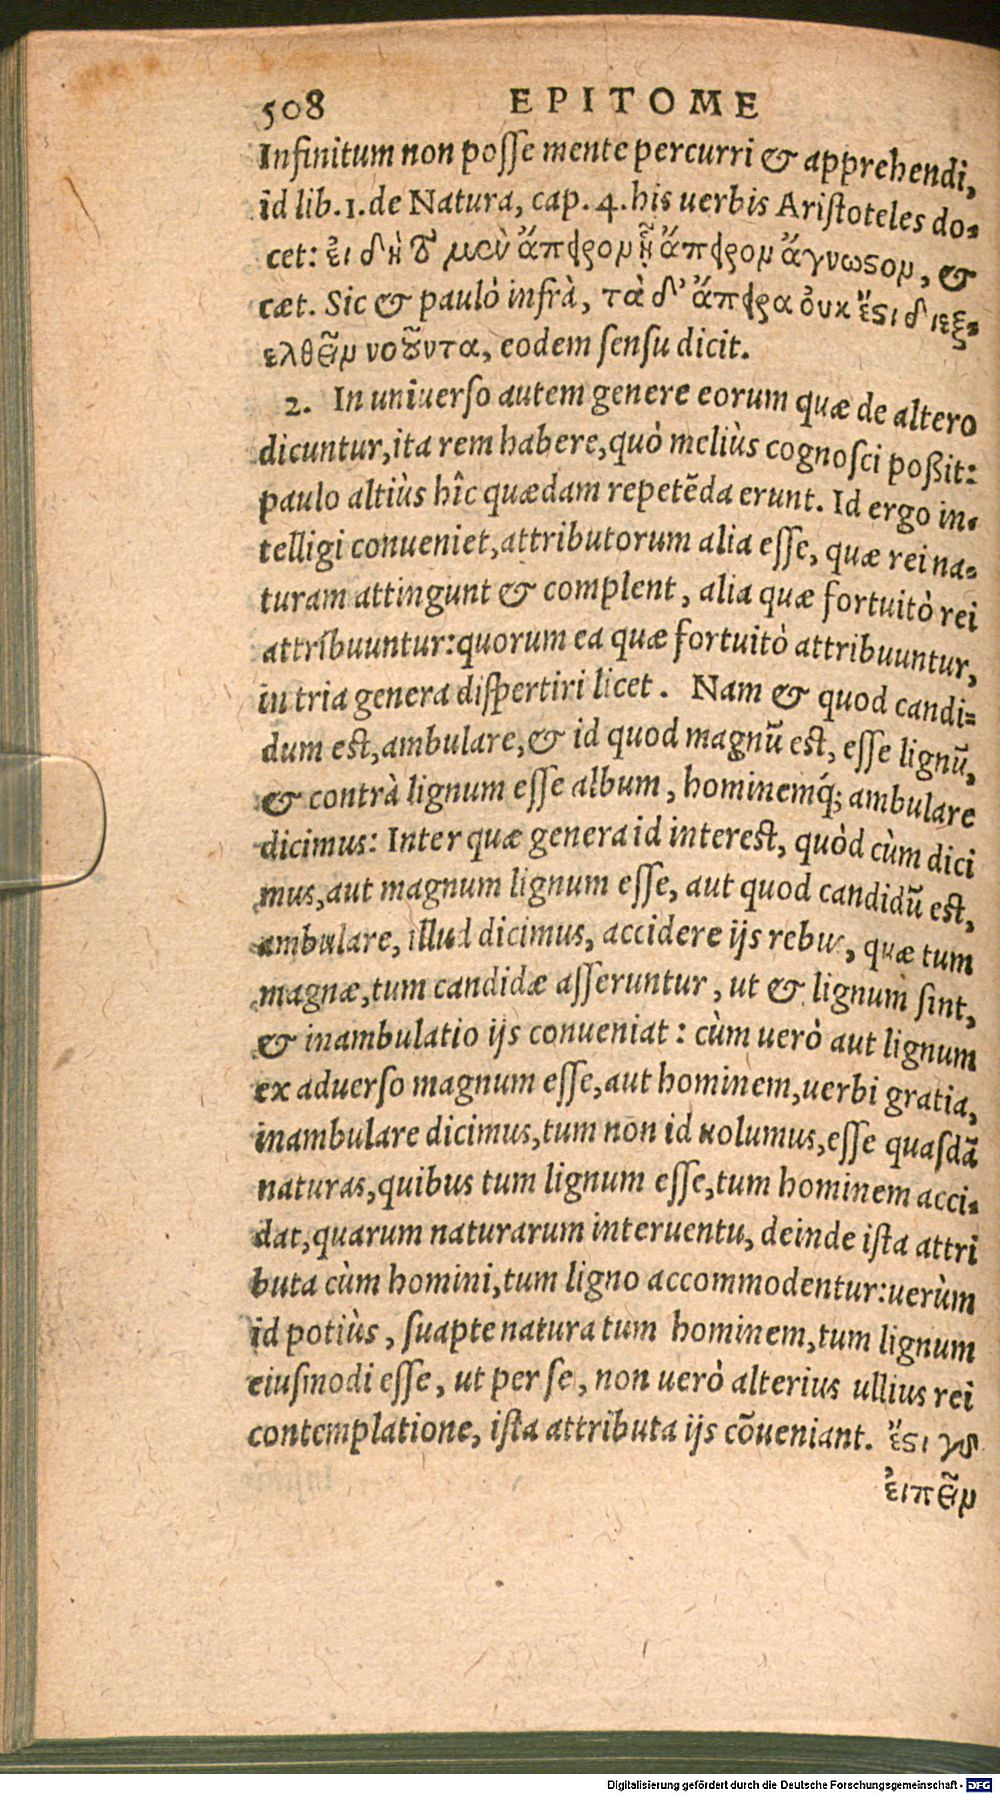 508 EPITOME
Infinitum non posse mente percurri & apprehendi,
id lib. 1. de Natura, cap. 4. his uerbis Aristoteles do-
cet: εἰ δὴ τὸ μὲν ἄπειρον ᾗ ἄπειρον ἄγνωστον, &
cæt. Sic & paulò infrà, τὰ δ' ἄπειρα οὐκ ἔστι διεξ-
ελθεῖν νοοῦντα, eodem sensu dicit.
2. In uniuerso autem genere eorum quæ de altero
dicuntur, ita rem habere, quò meliùs cognosci poßit:
paulo altiùs hîc quædam repetẽda erunt. Id ergo in-
telligi conueniet, attributorum alia esse, quæ rei na-
turam attingunt & complent, alia quæ fortuitò rei
attribuuntur: quorum ea quæ fortuitò attribuuntur,
in tria genera dispertiri licet. Nam & quod candi-
dum est, ambulare, & id quod magnũ est, esse lignũ,
& contrà lignum esse album, hominemq́; ambulare
dicimus: Inter quæ genera id interest, quòd cùm dici
mus, aut magnum lignum esse, aut quod candidũ est,
ambulare, illud dicimus, accidere ijs rebus, quæ tum
magnæ, tum candidæ asseruntur, ut & lignum sint,
& inambulatio ijs conueniat: cùm uerò aut lignum
ex aduerso magnum esse, aut hominem, uerbi gratia,
inambulare dicimus, tum non id uolumus, esse quasdã
naturas, quibus tum lignum esse, tum hominem acci-
dat, quarum naturarum interuentu, deinde ista attri
buta cùm homini, tum ligno accommodentur: uerùm
id potiùs, suapte natura tum hominem, tum lignum
eiusmodi esse, ut per se, non uerò alterius ullius rei
contemplatione, ista attributa ijs cõueniant. ἔστι γὰρ
εἰπεῖν
Digitalisierung gefördert durch die Deutsche Forschungsgemeinschaft - DFG